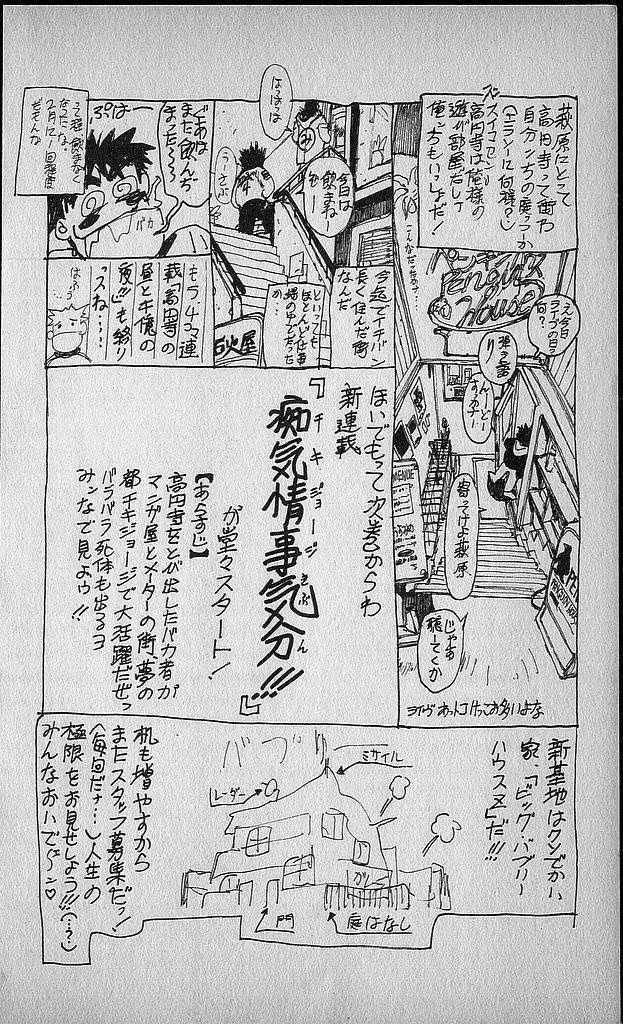 萩原にとって
高円寺って街や
自分ンちの庭っつーか
(エラソーに何様?)
スイマセン
高円寺は俺様の
遊び部屋だしィ
俺っちもいっしょだ!
こんなだったかナァ…
え、今日
ライブの日?
何?
んーどー
すっかナー
寄ってけよ萩原
じゃあ
聴ーてくか
ライヴあっトコけっこお多いよな
はっはっは
今日は
飲まねー
ぞー
うーそぶ
石火屋
今迄でイチバン
長く住んだ街
なんだ
といっても
ほとんど仕事
場の中だった
か…
ぐあぁは
また飲んぢ
まった〜〜
ぷはー
バカ
って程飲まなく
なったな。
2月に1回程度
だもんな
もう、4コマ連
載「高円寺の
昼と千億の
夜」も終り
っスね……
はふぅ
ほいでもって次巻からわ
新連載
『痴気情事気分!!!』
チキジョージ
きぶん
が堂々スタート!
【あらすじ】
高円寺をとび出したバカ者が
マンガ屋とメーターの街、夢の
都チキジョージで大活躍だぜっ
バラバラ死体も出るヨ
みンなで見よウ!!
新基地はクソでかい
家、「ビッグ・バブリー
ハウスZ」だ!!!
バブ
ミサイル
レーダー
門
庭はなし
机も増やすから
またスタッフ募集だっ!
(毎回だナ…)人生の
極限をお見せしよう!!(…?)
みんなおいでに〜ン♡